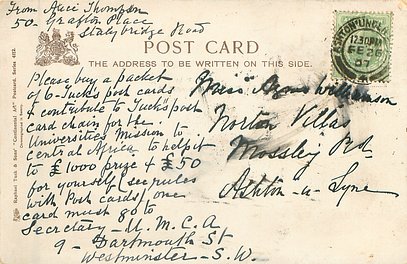 From Alice Thompson
50. Grafton Place
Stalybridge Road
POST CARD
THE ADDRESS TO BE WRITTEN ON THIS SIDE.
Please buy a packet
of 6 Tucks post cards
& contribute to Tucks post
card chain for the
Universities Mission to
Central Africa to help it
to £1000 prize & £50
for yourself (see rules
with Post cards) one
card must go to
Secretary - U.M.C.A
9 - Dartmouth St
Westminster - S.W.
Miss Williamson
Norton Villas
Mossley Rd
Ashton-u-Lyne
12.30PM
FE 26
07